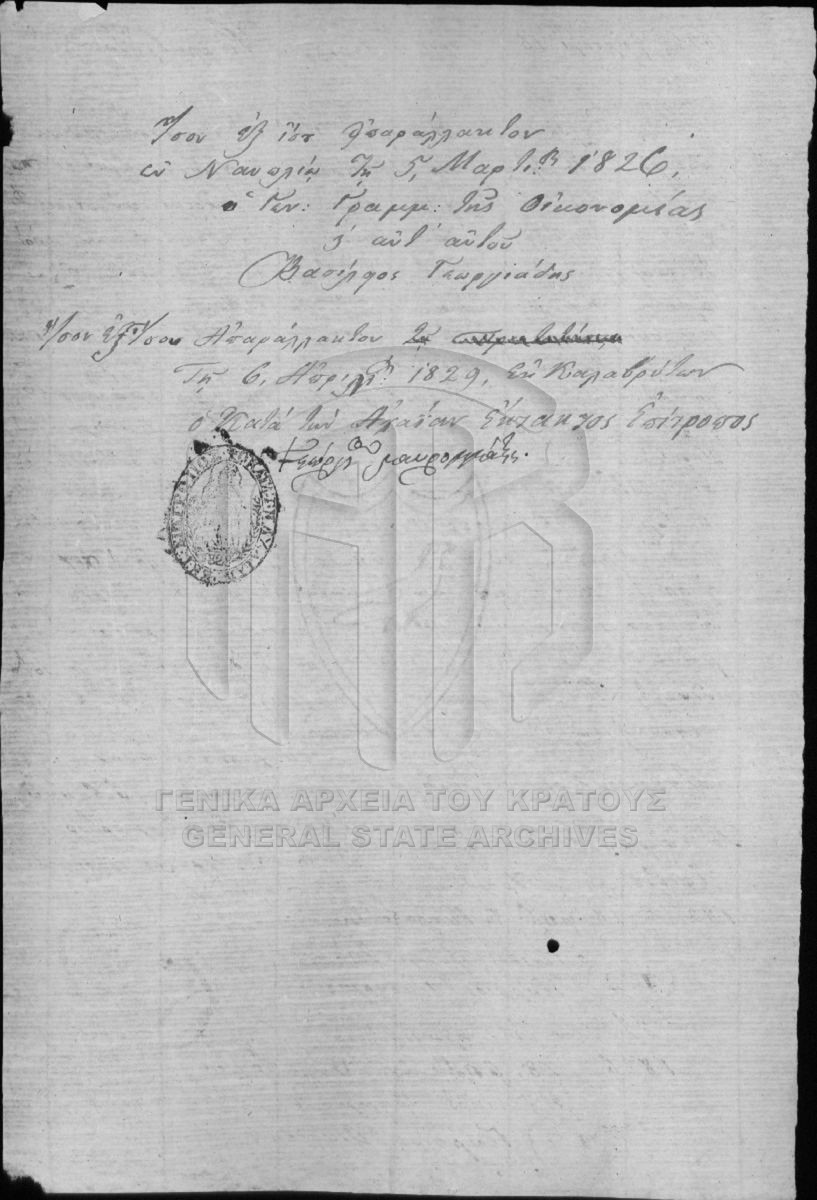 Ἴσον ἐξ ἴσ ἀπαράλλακτον
ἐν Ναυπλίῳ τῇ 5, Μαρτ. 1826,
ὁ Γεν: Γραμμ: τῆς Οἰκονομίας
αὐτ' αὐτοῦ
Βασίλειος Γεωργιάδης
Ἴσον ἐξ Ἴσου Ἀπαράλλακτον
Τῇ 6, Ἀπριλλ. 1829, ἐν Καλαβρύτων
ὁ Κατὰ τὴν Ἀχαΐαν Ἔκτακτος Ἐπίτροπος
Γεώργ Μαυρομμάτ.
ΓΕΝΙΚΑ ΑΡΧΕΙΑ ΤΟΥ ΚΡΑΤΟΥΣ
GENERAL STATE ARCHIVES